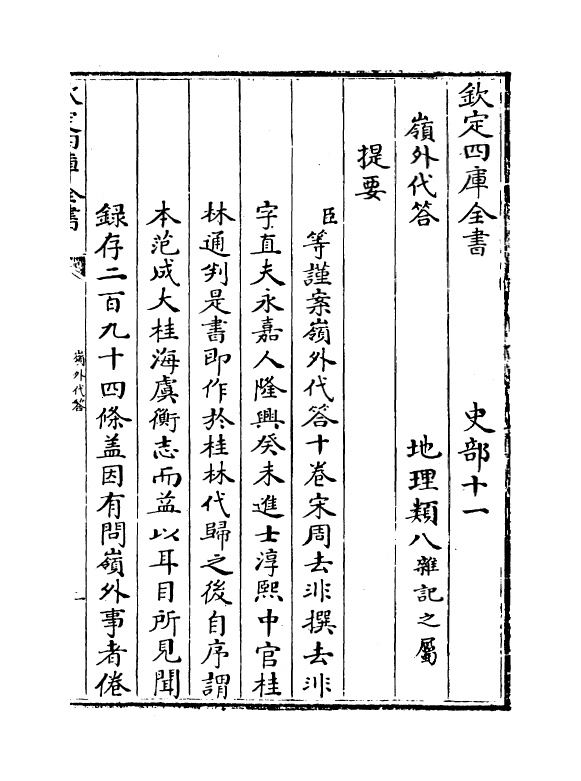 欽定四庫全書　史部十一
嶺外代答　地理類八雜記之屬
提要
臣等謹案嶺外代答十卷宋周去非撰去非
字直夫永嘉人隆興癸未進士淳熙中官桂
林通判是書即作於桂林代歸之後自序謂
本范成大桂海虞衡志而益以耳目所見聞
録存二百九十四條盖因有問嶺外事者倦
欽定四庫全書
嶺外代答
一